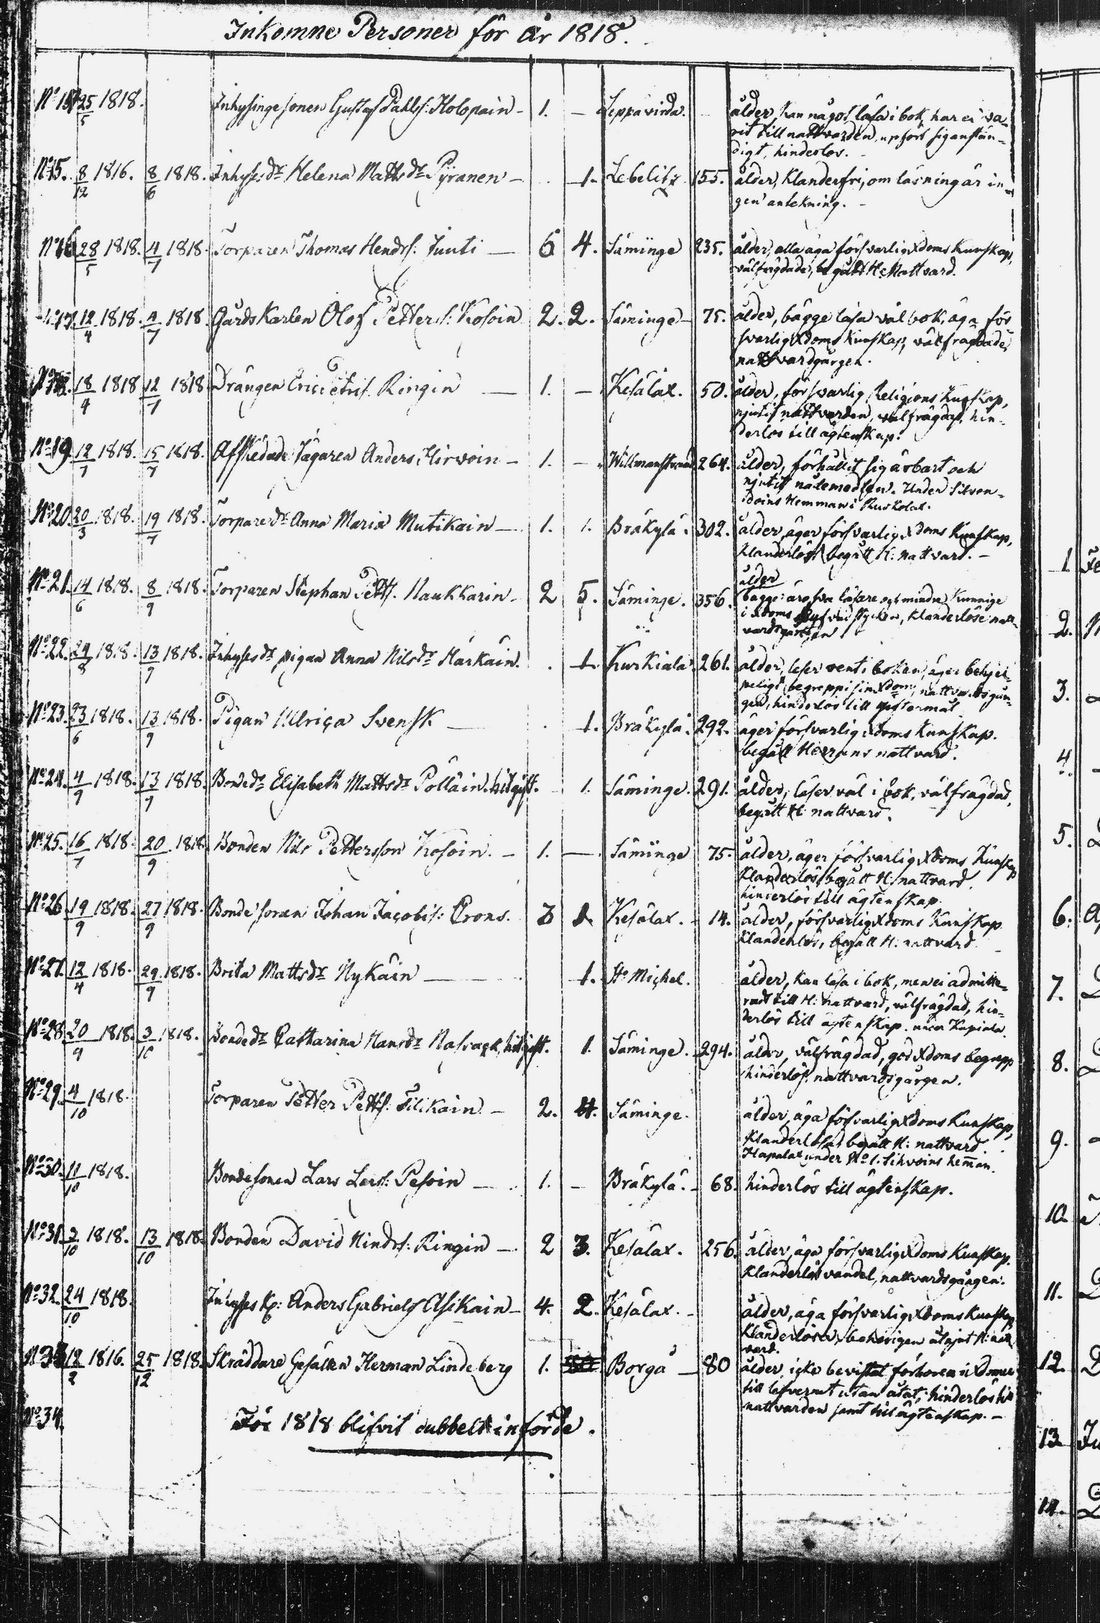 Inkomne Personer för år 1818.
25/5 1818. Inhysinge sonen Gustaf Påhlss: Holopain 1. — Leppävirda. ålder, kan något läsa i bok, har ei va-
rit till nattvarden, upfört sig anstän-
digt, hinderlös.
N:o 15. 8/12 1816. 8/6 1818. Inhyses dr Helena Mattsdr Pyränen 1. Lebelitz 155. ålder, klanderfri, om läsning är in-
gen antekning.
N:o 16 28/5 1818. 4/7 1818. Torparen Thomas Hendrs: Juuti 6 4. Säminge 235. ålder, alla äga försvarlig Xdoms Kunskap,
välfrägdade, begått H: Nattvard.
1818. 1818. Gårds Karlen Olof Petters: Kosoin 2. 2. Säminge 75. ålder, bägge läsa väl i bok, äga för
svarlig Xdoms Kunskap, välfrägdade,
nattvardgången.
18/4 1818 12/7 1818 Drängen Eric Ringin 1. — Kesälax. 50. ålder, försvarlig Religions Kunskap,
njutit nattvarden, välfrägdad, hin-
derlös till ägtenskap.
N:o 19 12/7 1818. 15/7 1818. Afskedade Jägaren Anders Hirvoin 1. — Willmanstrand 264. ålder, förhållit sig ärbart och
njutit nådemedlen. Under
Hemman i
N:o 20. 20/3 1818. 19/7 1818. Torparedr Anna Maria Mutikain 1. 1. Bräkylä 302. ålder, äger försvarlig Xdoms Kunskap,
Klanderlös, begått H: nattvard.
N:o 21. 14/6 1818. 8/9 1818. Torparen Stephan Petts. Naukkarin 2 5. Säminge. 356. ålder
bägge äro läsare och mindre Kunnige
i Xdoms stycken, klanderlöse natt-
vardsgången
N:o 22. 1818. 13/9 1818. Inhysesdr pigan Anna Nilsdr Härkäin. 1. Kurkiala 261. ålder, läser i boken, äger behjel-
peligt begrepp i sin Xdom, nattvardsgån-
gen, hinderlös till
N:o 23. 23/6 1818. 13/9 1818. Pigan Ulrica Svensk 1. Bräkylä 292. äger försvarlig Xdoms Kunskap.
begått Herrans nattvard.
N:o 24. 4/9 1818. 13/9 1818. Bondedr Elisabeth Mattsdr Pölläin. hitgift. 1. Säminge. 291. ålder, läser väl i bok, välfrägdad,
begått H: nattvard.
N:o 25. 16/7 1818. 20/9 1818 Bonden Nils Pettersson Kosoin. 1. — Säminge 75. ålder, äger försvarlig Xdoms Kunskap
Klanderlös, begått H: nattvard.
hinderlös till ägtenskap.
N:o 26 19/9 1818. 27/9 1818. Bondesonen Johan Jacobss: Crons. 3 1. Kesälax. 14. ålder, försvarlig Xdoms Kunskap
Klanderlös, begått H: nattvard
N:o 27. 12/4 1818. 29/9 1818. Brita Mattsdr Nykäin 1. St Michel. ålder, Kan läsa i bok, men ei admitte-
rad till H: nattvard, välfrägdad, hin-
derlös till ägtenskap.
N:o 28. 20/9 1818. 3/10 1818. Bondedr Catharina Hansdr hitgift. 1. Säminge. 294. ålder, välfrägdad, god Xdoms begrepp
hinderlös. nattvardsgången.
N:o 29. 4/10 1818. Torparen Petter Petts. Silikain 2. 4. Säminge. ålder, äga försvarlig Xdoms Kunskap,
Klanderlösa, begått H: nattvard.
under N:o 1. heman.
N:o 30. 11/10 1818. Bondesonen Lars Lars: Pesoin 1. — Bräkylä. 68. hinderlös till ägtenskap.
N:o 31. 1818. 13/10 1818. Bonden David Hindrs: Ringin 2 3. Kesälax. 256. ålder, äga försvarlig Xdoms Kunskap.
Klanderlös vandel, nattvardsgången.
N:o 32. 24/10 1818. Inhyses K: Anders Gabrielss Asikain 4. 2. Kesälax. ålder, äga försvarlig Xdoms Kunskap
Klanderlösa, behörigen H: natt
vard.
N:o 33 1816. 25/12 1818. Skräddare Gesällen Herman Lindeberg 1. Borgå 80 ålder, icke bevistat förhören i
till hinderlös
nattvarden samt till ägtenskap.
N:o 34. För 1818 blifvit dubbelt införde.
1.
2.
3.
4.
5.
6.
7.
8.
9.
10.
11.
12.
13.
14.